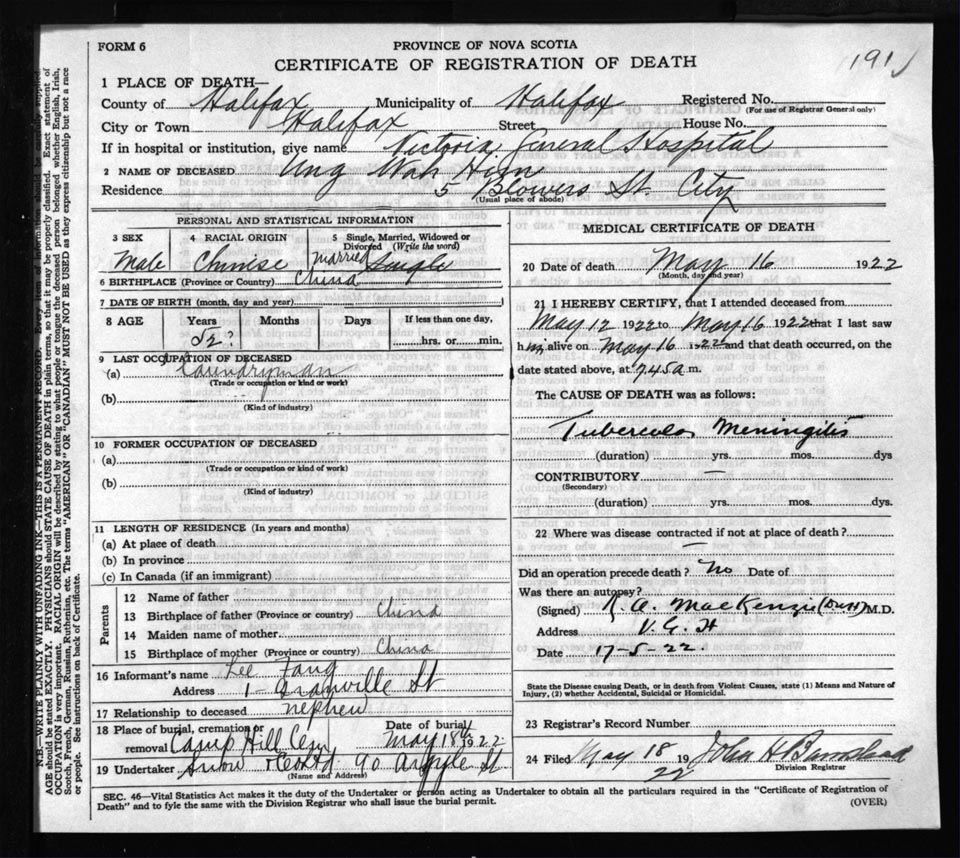 FORM 6
PROVINCE OF NOVA SCOTIA
CERTIFICATE OF REGISTRATION OF DEATH
191
1 PLACE OF DEATH—
County of Halifax Municipality of Halifax Registered No.
(For use of Registrar General only)
City or Town Halifax Street House No.
If in hospital or institution, give name Victoria General Hospital
2 NAME OF DECEASED Ung Wah Hien
Residence 5 Blowers St. City
(Usual place of abode)
PERSONAL AND STATISTICAL INFORMATION
3 SEX 4 RACIAL ORIGIN 5 Single, Married, Widowed or Divorced (Write the word)
Male Chinise married Single
6 BIRTHPLACE (Province or Country) China
7 DATE OF BIRTH (month, day and year)
8 AGE Years Months Days If less than one day,
52? hrs. or min.
9 LAST OCCUPATION OF DECEASED
(a) Laundryman
(Trade or occupation or kind or work)
(b)
(Kind of industry)
10 FORMER OCCUPATION OF DECEASED
(a)
(Trade or occupation or kind or work)
(b)
(Kind of industry)
11 LENGTH OF RESIDENCE (In years and months)
(a) At place of death
(b) In province
(c) In Canada (if an immigrant)
Parents
12 Name of father
13 Birthplace of father (Province or country) China
14 Maiden name of mother
15 Birthplace of mother (Province or country) China
16 Informant's name Lee Fang
Address 1- Granville St
17 Relationship to deceased nephew
18 Place of burial, cremation or removal Camp Hill Cem Date of burial May 18th 1922
19 Undertaker Snow & Co Ltd. 90 Argyle St.
(Name and Address)
MEDICAL CERTIFICATE OF DEATH
20 Date of death May 16 1922
(Month, day and year)
21 I HEREBY CERTIFY, that I attended deceased from
May 12 1922 to May 16 1922 that I last saw
him alive on May 16 1922 and that death occurred, on the
date stated above, at 7.45 a m.
The CAUSE OF DEATH was as follows:
Tubercular Meningitis
(duration) yrs. mos. dys
CONTRIBUTORY —
(Secondary)
(duration) yrs. mos. dys.
22 Where was disease contracted if not at place of death?
—
Did an operation precede death? No Date of
Was there an autopsy?
(Signed) A. MacKenzie M.D.
Address V. G. H
Date 17-5-22.
State the Disease causing Death, or in death from Violent Causes, state (1) Means and Nature of Injury, (2) whether Accidental, Suicidal or Homicidal.
23 Registrar's Record Number
24 Filed May 18 1922 John H Barnstead
Division Registrar
SEC. 46—Vital Statistics Act makes it the duty of the Undertaker or person acting as Undertaker to obtain all the particulars required in the "Certificate of Registration of
Death" and to fyle the same with the Division Registrar who shall issue the burial permit.
(OVER)
N.B.—WRITE PLAINLY WITH UNFADING INK—THIS IS A PERMANENT RECORD. Every item of information should be carefully supplied.
AGE should be stated EXACTLY. PHYSICIANS should STATE CAUSE OF DEATH in plain terms, so that it may be properly classified. Exact statement of
OCCUPATION is very important. RACIAL ORIGIN will be described by stating to what people or tongue the deceased person belonged whether English, Irish,
Scotch, French, German, Russian, Ruthenian, etc. The terms "AMERICAN" OR "CANADIAN" MUST NOT BE USED as they express citizenship but not a race
or people. See instructions on back of Certificate.